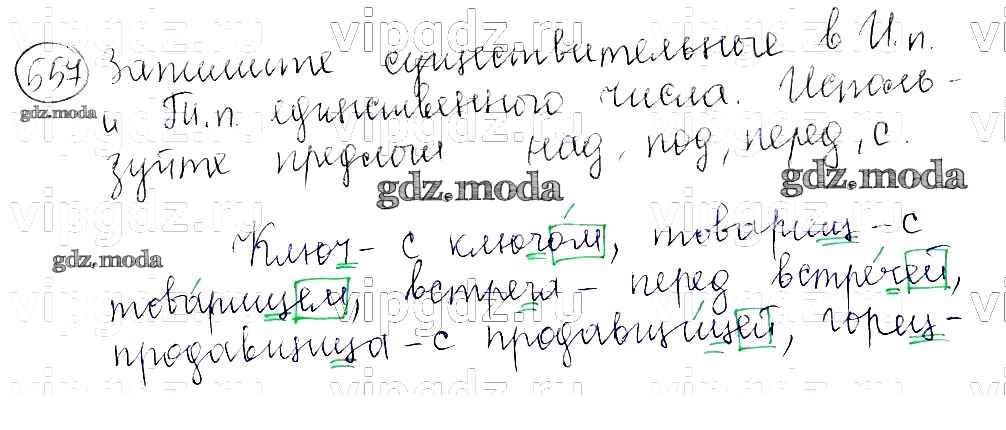 557 Запишите существительные в И.п.
и Тв.п. единственного числа. Исполь-
зуйте предлоги над, под, перед, с.
Ключ - с ключом, товарищ - с
товарищем, встреча - перед встречей,
продавщица - с продавщицей, горец-
gdz.moda
gdz.moda
gdz.moda
gdz.moda